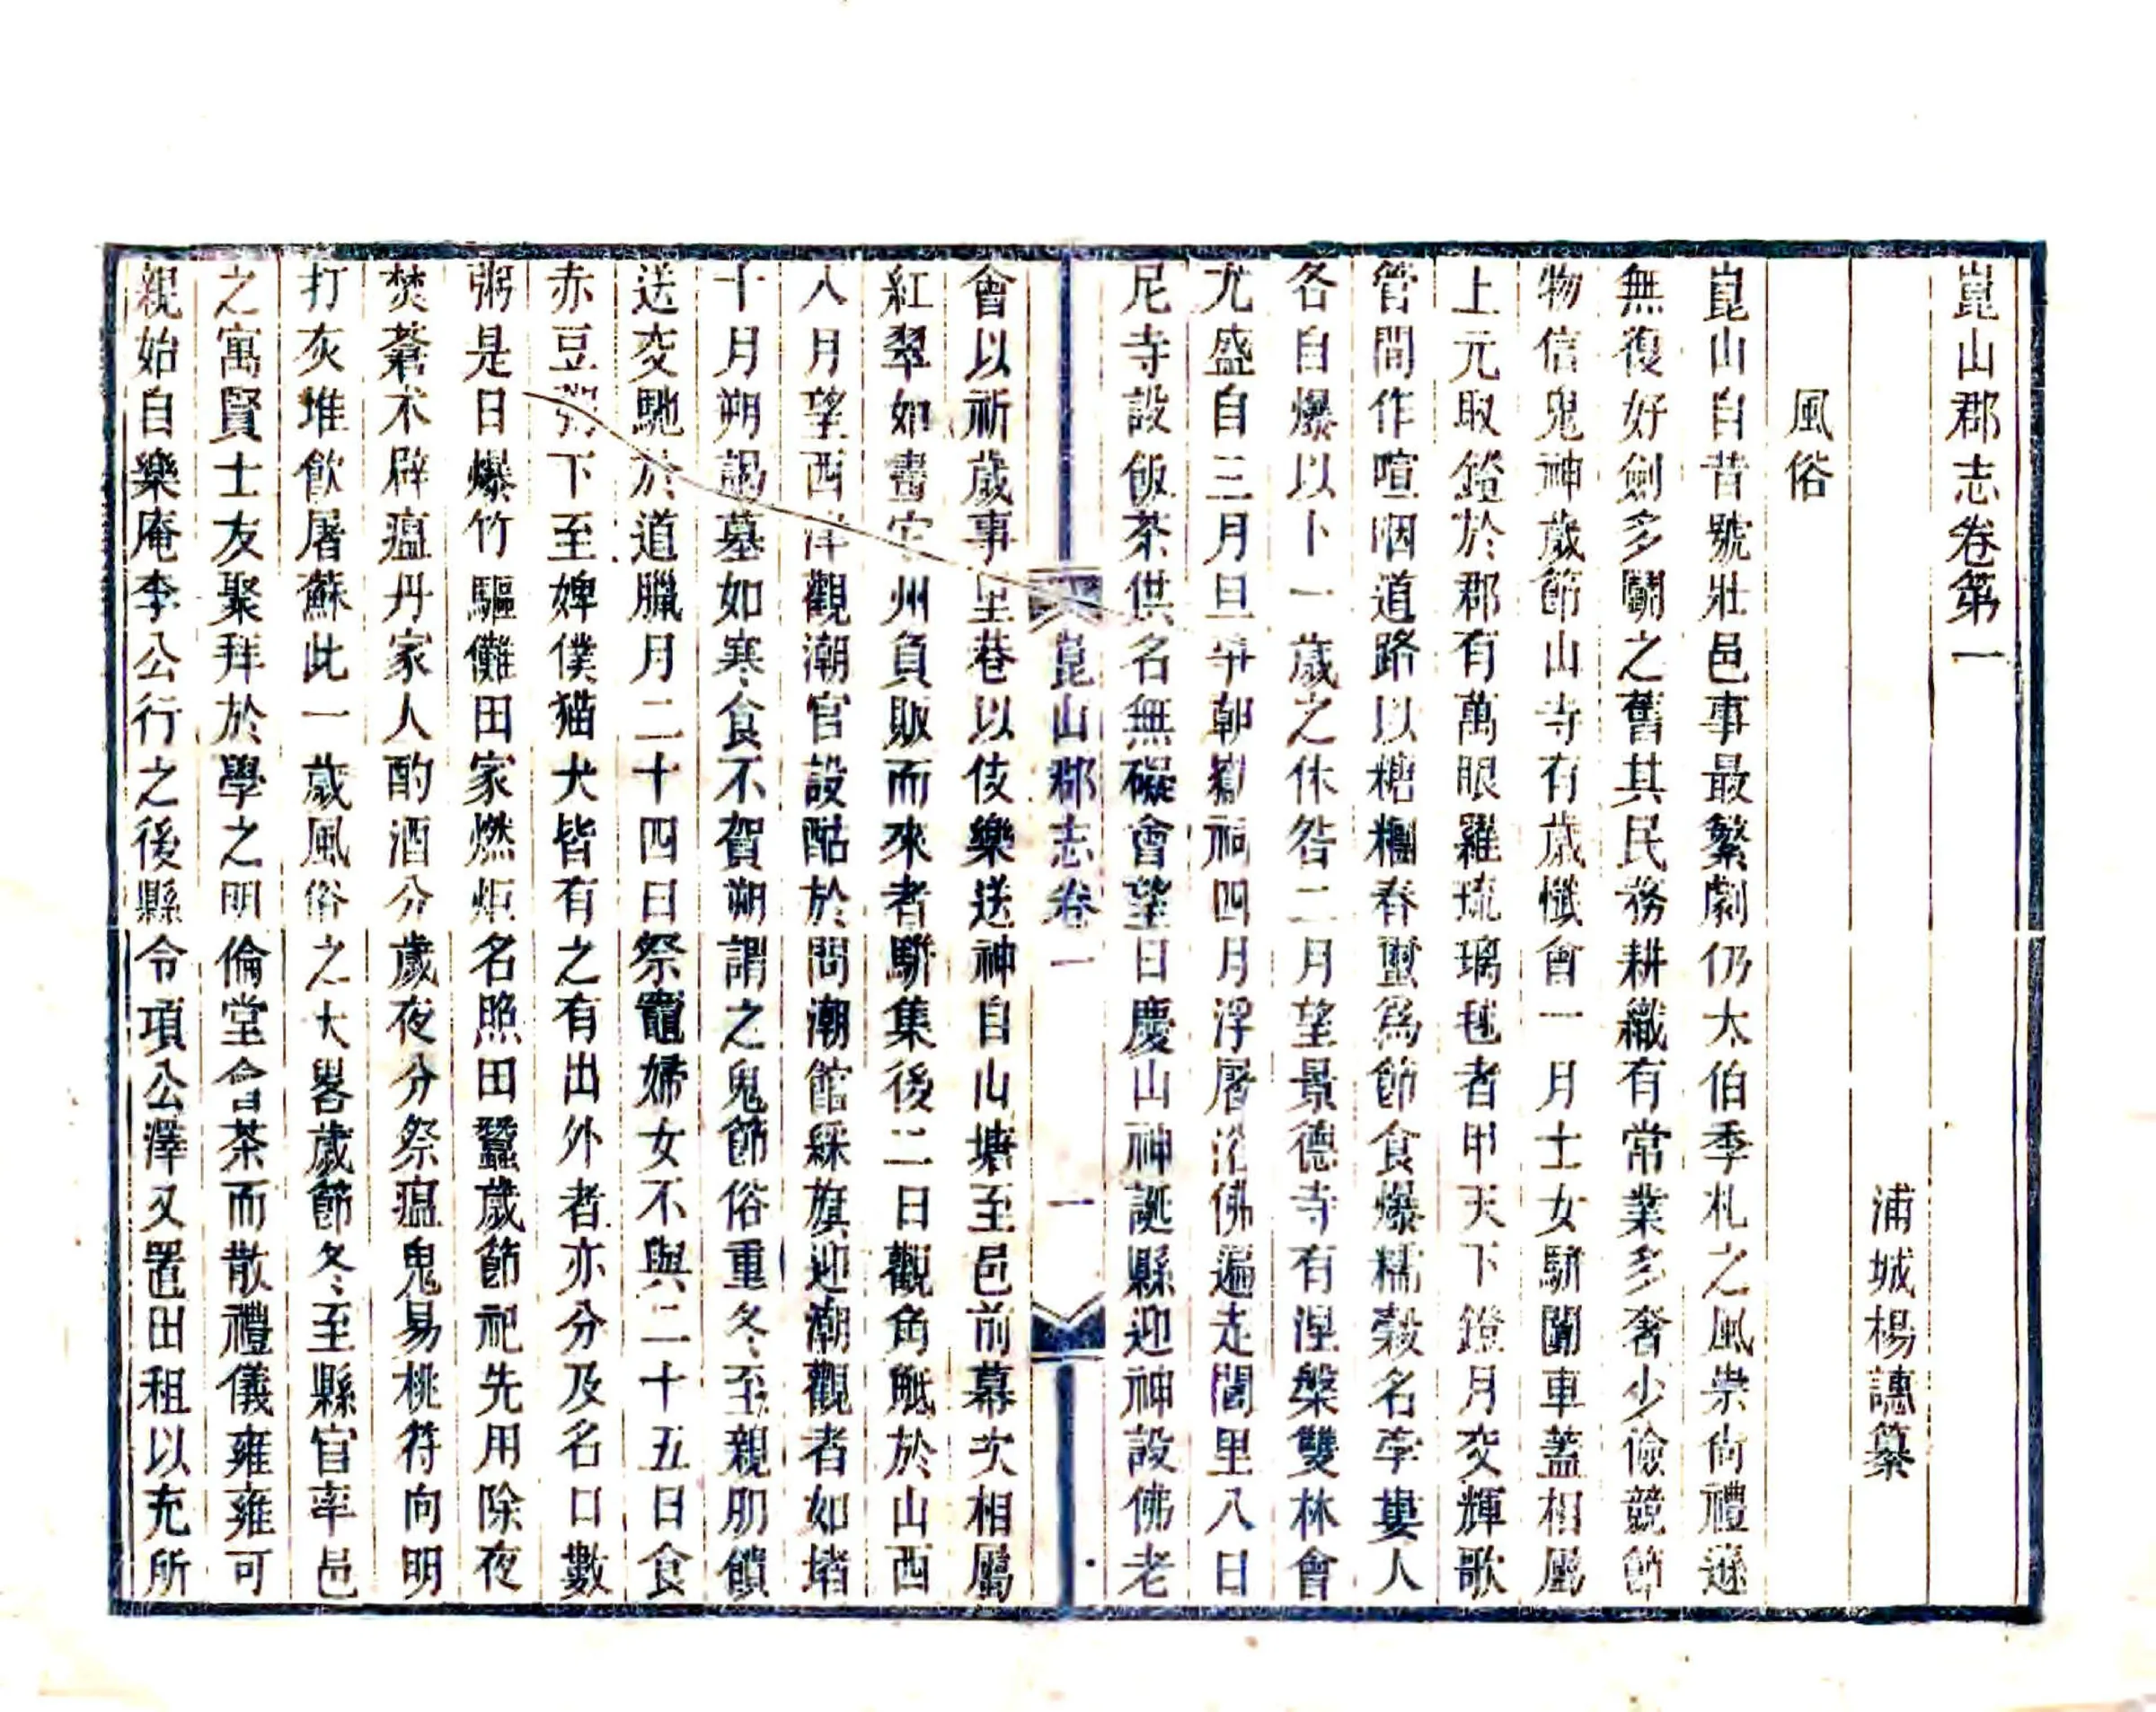 崑山郡志卷第一
浦城楊譓纂
風俗
崑山自昔號壯邑事最繁劇仍太伯季札之風崇尙禮遜
無復好劍多鬬之舊其民務耕織有常業多奢少儉競節
物信鬼神歲節山寺有歲懺會一月士女騈闐車蓋相屬
上元取鐙於郡有萬眼羅琉璃毬者甲天下鐙月交輝歌
管間作喧咽道路以糖糰春蠒爲節食爆糯穀名孛婁人
各自爆以卜一歲之休咎二月望景德寺有涅槃雙林會
尤盛自三月旦爭朝嶽祠四月浮屠浴佛遍走閭里八日
尼寺設飯茶供名無礙會望日慶山神誕縣迎神設佛老
崑山郡志卷一
一
會以祈歲事里巷以伎樂送神自山塘至邑前幕次相屬
紅翠如畫它州負販而來者騈集後二日觀角觝於山西
八月望西津觀潮官設酤於問潮館綵旗迎潮觀者如堵
十月朔謁墓如寒食不賀朔謂之鬼節俗重冬至親朋饋
送交馳於道臘月二十四日祭竈婦女不與二十五日食
赤豆粥下至婢僕猫犬皆有之有出外者亦分及名口數
粥是日爆竹驅儺田家燃炬名照田蠶歲節祀先用除夜
焚蒼朮辟瘟丹家人酌酒分歲夜分祭瘟鬼易桃符向明
打灰堆飮屠蘇此一歲風俗之大畧歲節冬至縣官率邑
之寓賢士友聚拜於學之明倫堂會茶而散禮儀雍雍可
親始自樂庵李公行之後縣令項公澤又置田租以充所